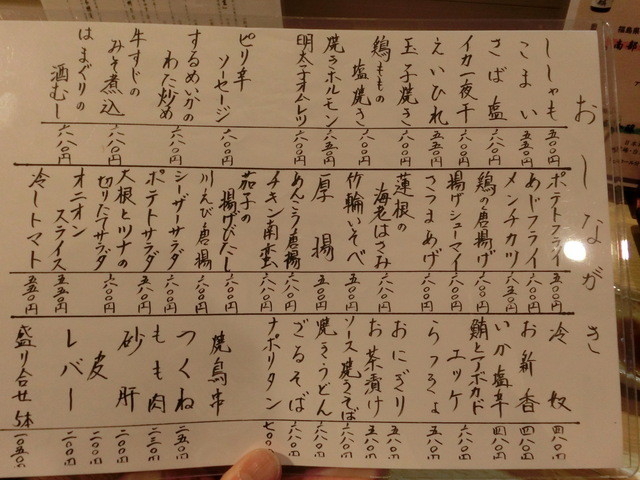 おしながき
ししゃも 五〇〇円
こまい 五五〇円
さば塩 六八〇円
イカ一夜干 六八〇円
えいひれ 五五〇円
玉子焼き 六〇〇円
鶏ももの塩焼き 六八〇円
焼ラホルモン 六五〇円
明太子オムレツ 六八〇円
ピリ辛ソーセージ 六〇〇円
するめいかのわた炒め 六八〇円
牛すじのみそ煮込 六八〇円
はまぐりの酒むし 六八〇円
ポテトフライ 五〇〇円
あじフライ 六〇〇円
メンチカツ 六五〇円
鶏の唐揚げ 六八〇円
揚げシューマイ 六〇〇円
さつまあげ 六〇〇円
蓮根の海老はさみ 六八〇円
竹輪いそべ 五〇〇円
厚揚 五〇〇円
あんこう唐揚 六八〇円
チキン南蛮 六八〇円
茄子の揚げびたし 六〇〇円
川えび唐揚 六〇〇円
シーザーサラダ 六八〇円
ポテトサラダ 五〇〇円
大根とツナの切りたてサラダ 六〇〇円
オニオンスライス 五五〇円
冷しトマト 五五〇円
冷奴 四八〇円
お新香 四八〇円
いか塩辛 四八〇円
鮪とアボカドユッケ 六八〇円
らっきょ 五八〇円
おにぎり
お茶漬け 五八〇円
ソース焼きそば 六八〇円
焼きうどん 六八〇円
ざるそば 六八〇円
ナポリタン 七〇〇円
焼鳥串
つくね 二五〇円
もも肉 二三〇円
砂肝 二〇〇円
皮 二〇〇円
レバー 二〇〇円
盛り合せ 5本 一〇五〇円